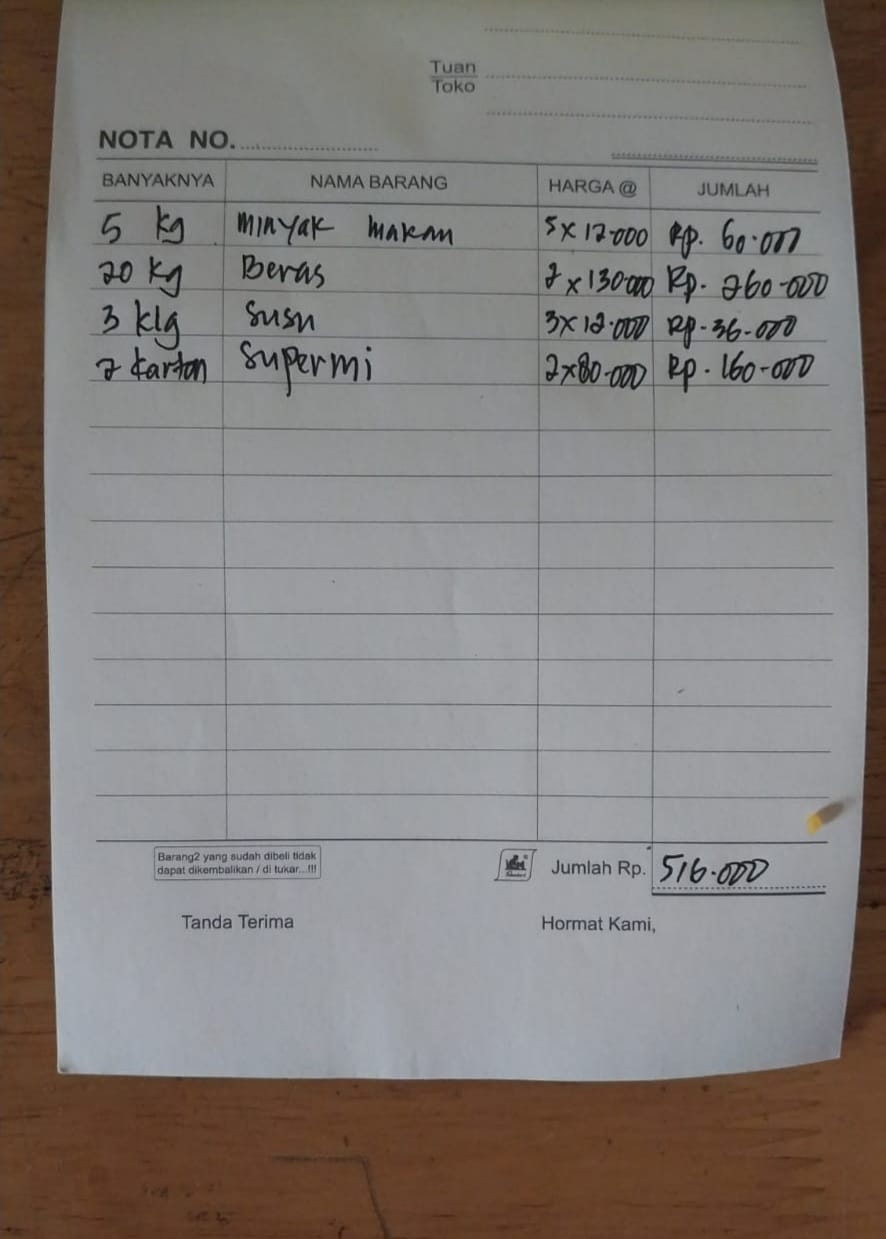 Tuan
Toko
NOTA NO.
BANYAKNYA NAMA BARANG HARGA @ JUMLAH
5 kg Minyak Makan 5 x 12.000 Rp. 60.000
20 kg Beras 2 x 130.000 Rp. 260.000
3 klg Susu 3 x 12.000 Rp. 36.000
2 karton Supermi 2 x 80.000 Rp. 160.000
Barang2 yang sudah dibeli tidak
dapat dikembalikan / di tukar...!!!
Jumlah Rp. 516.000
Tanda Terima Hormat Kami,